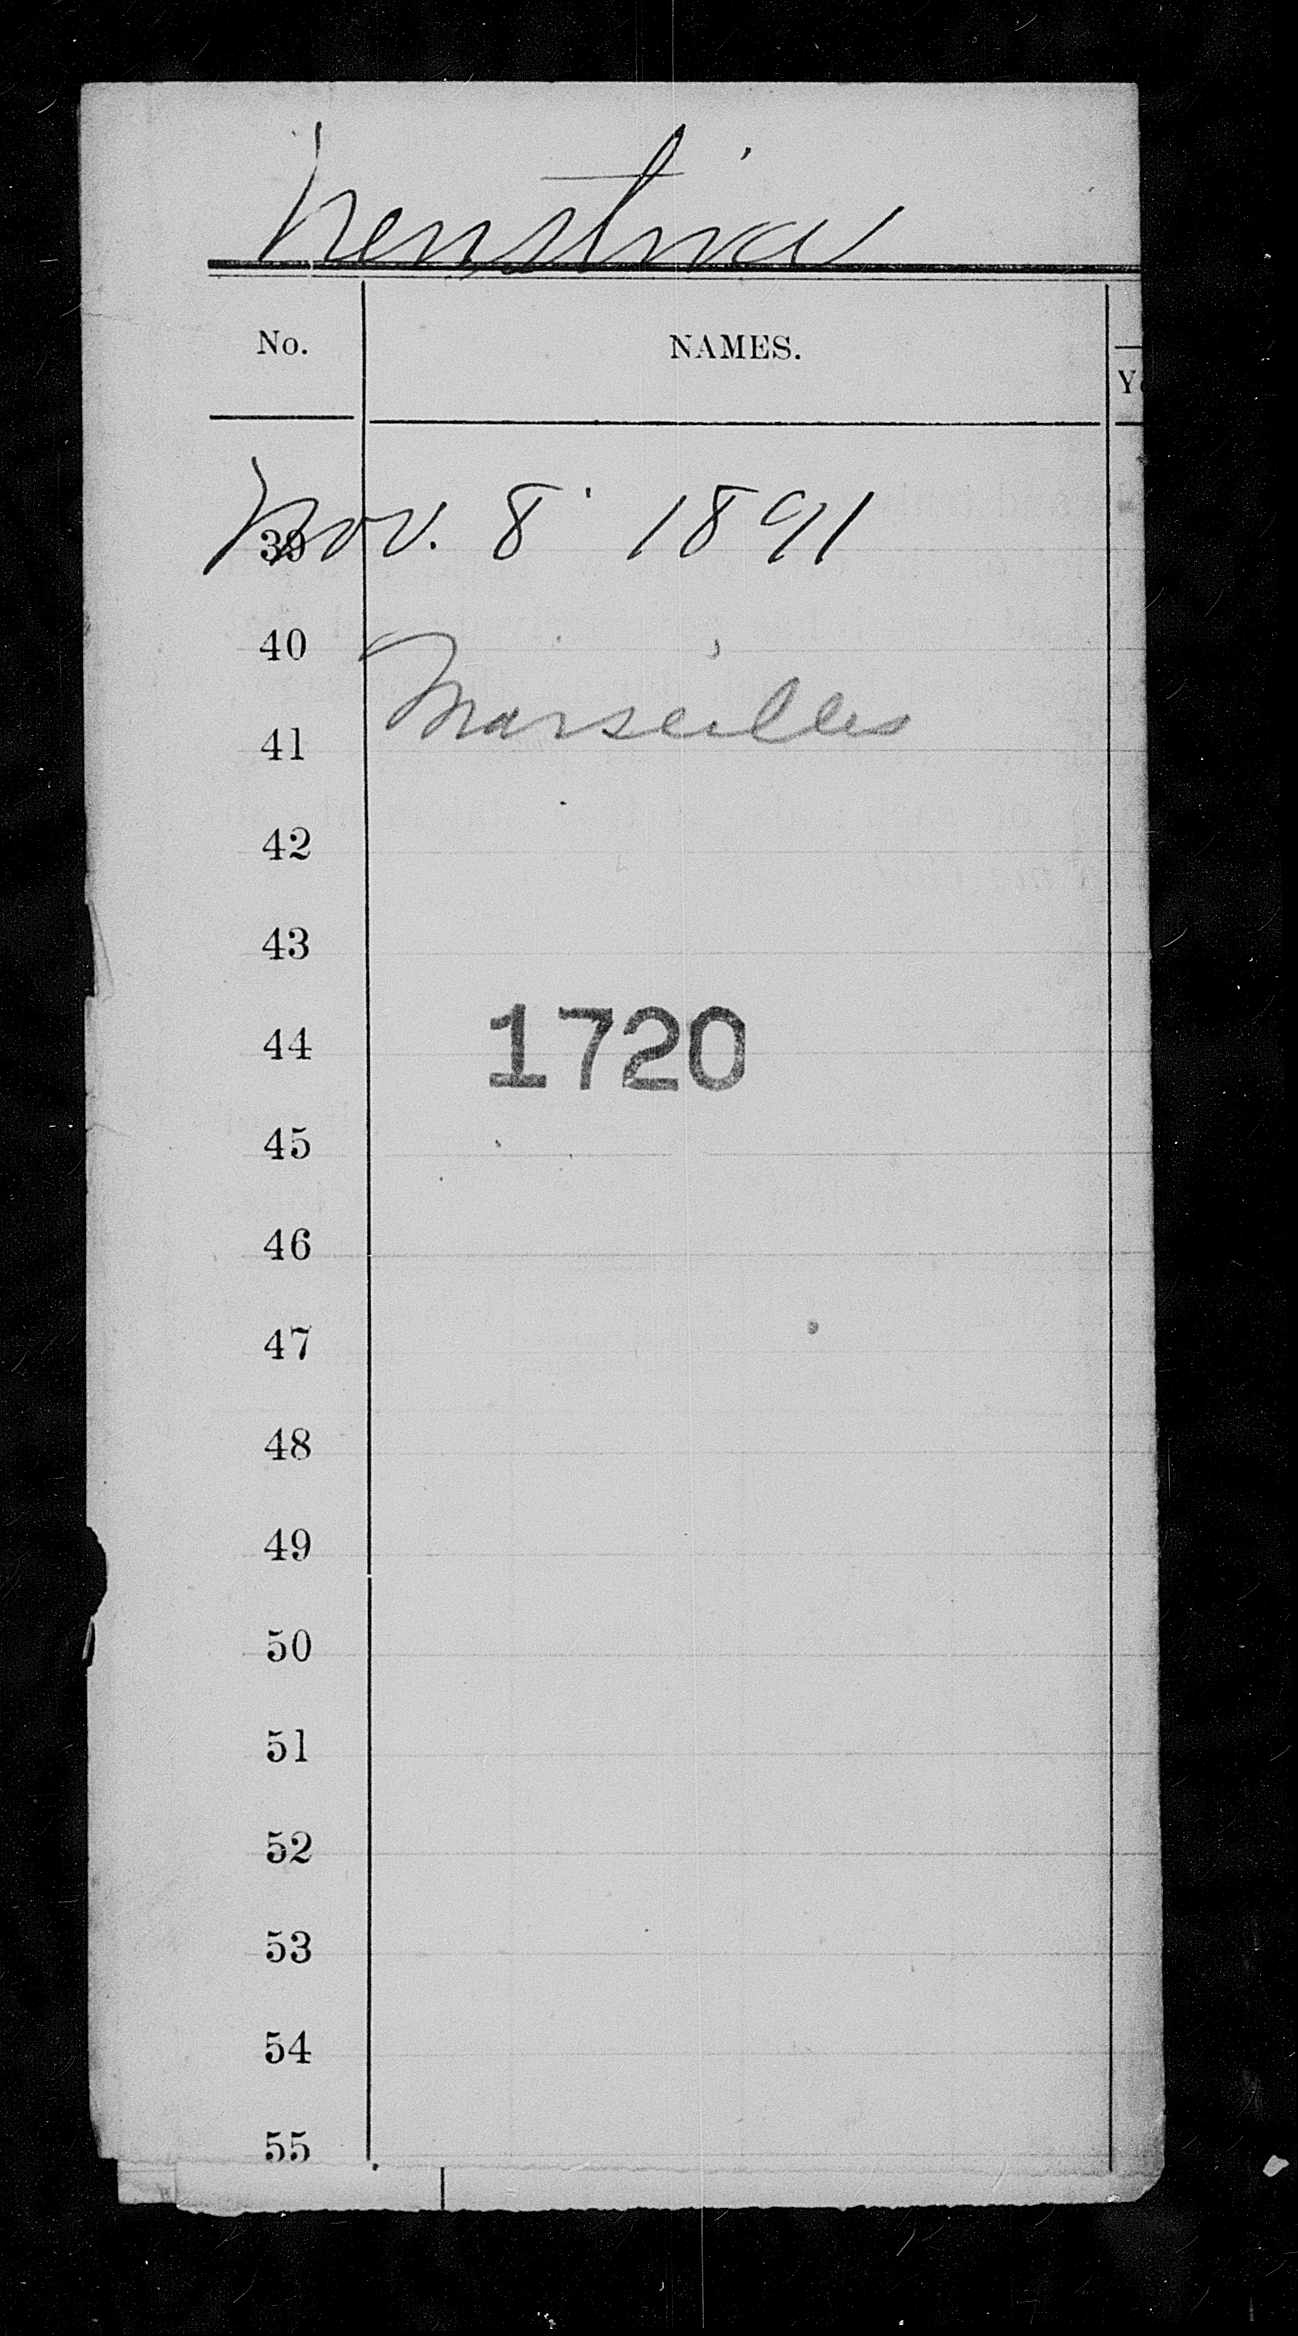 Neustria
No. NAMES.
Nov. 8 1891
39
40
Marseilles
41
42
43
1720
44
45
46
47
48
49
50
51
52
53
54
55